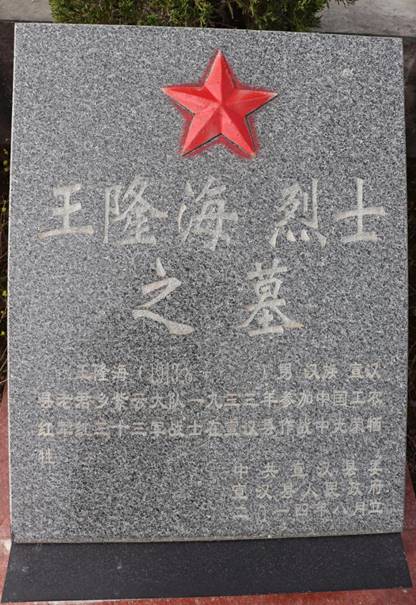 王隆海 烈士
之墓
王隆海（ ）男 汉族 宣汉
县老君乡 大队 一九三三年参加中国工农
红军红三十三军战士在宣汉县作战中光荣牺
牲
中共宣汉县委
宣汉县人民政府
二〇一四年八月立